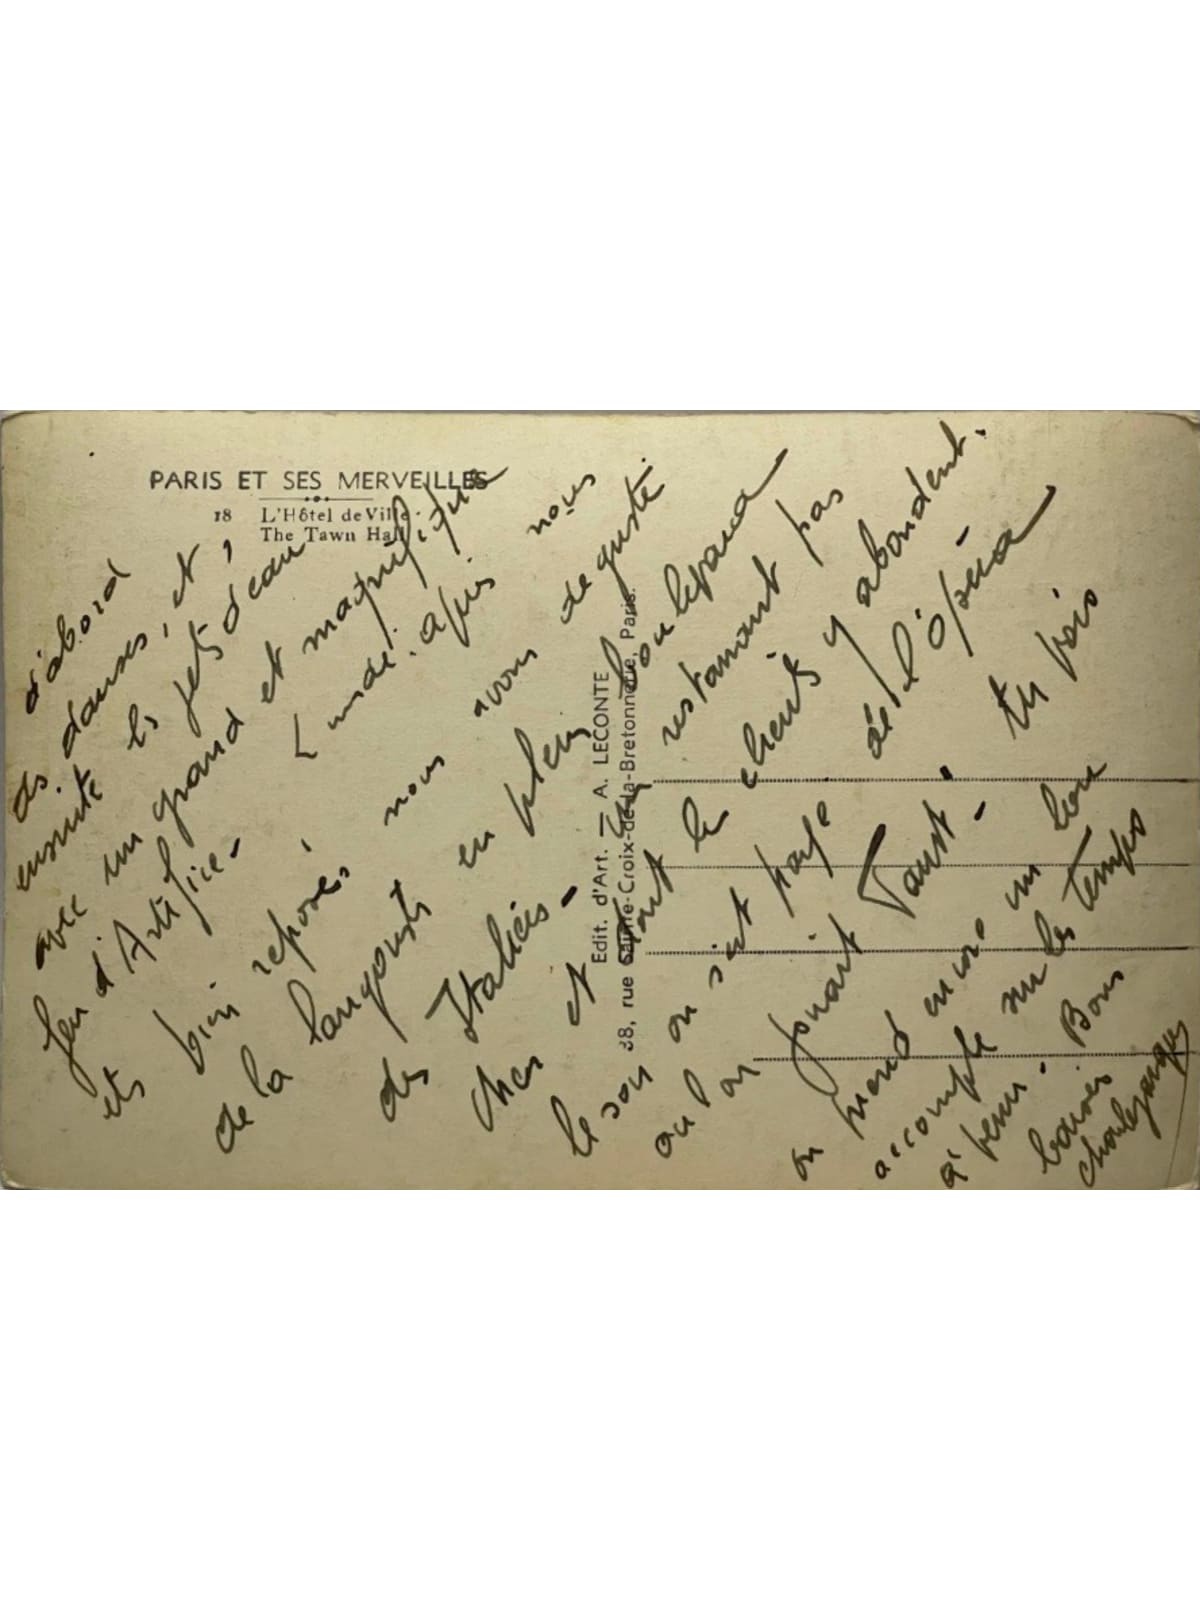 PARIS ET SES MERVEILLES
18 L'Hôtel de Ville
The Tawn Hall
Edit. d'Art. — A. LECONTE
38, rue Sainte-Croix-de-la-Bretonnerie, Paris.
d'abord
des danses, et,
ensuite les jets d'eau
avec un grand et magnifique
feu d'Artifice - Lundi. après nous
et bien reposés, nous avons dégusté
de la langouste en plein boulevard
des Italiens - Un restaurant pas
cher et dont les clients y abondent.
le soir on s'est payé de l'Opéra
où l'on jouait Faust. - tu vois
on prend encore un bon
accompte sur les Temps
à venir. Bons
baisers